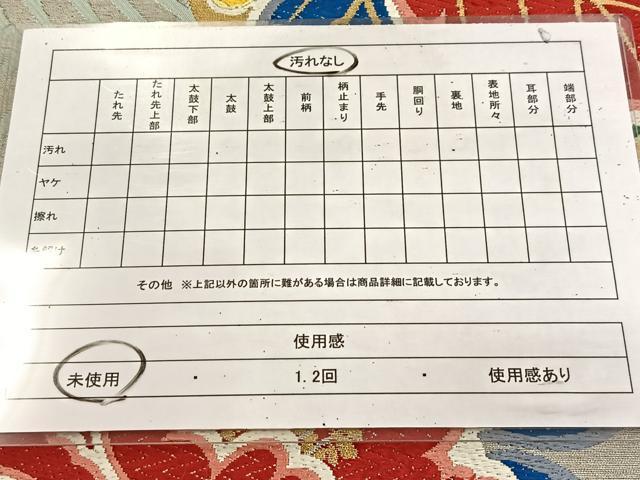 汚れなし
たれ先 たれ先上部 太鼓下部 太鼓 太鼓上部 前柄 柄止まり 手先 胴回り 裏地 表地所々 耳部分 端部分
汚れ
ヤケ
擦れ
その他 ※上記以外の箇所に難がある場合は商品詳細に記載しております。
使用感
未使用 ・ 1.2回 ・ 使用感あり